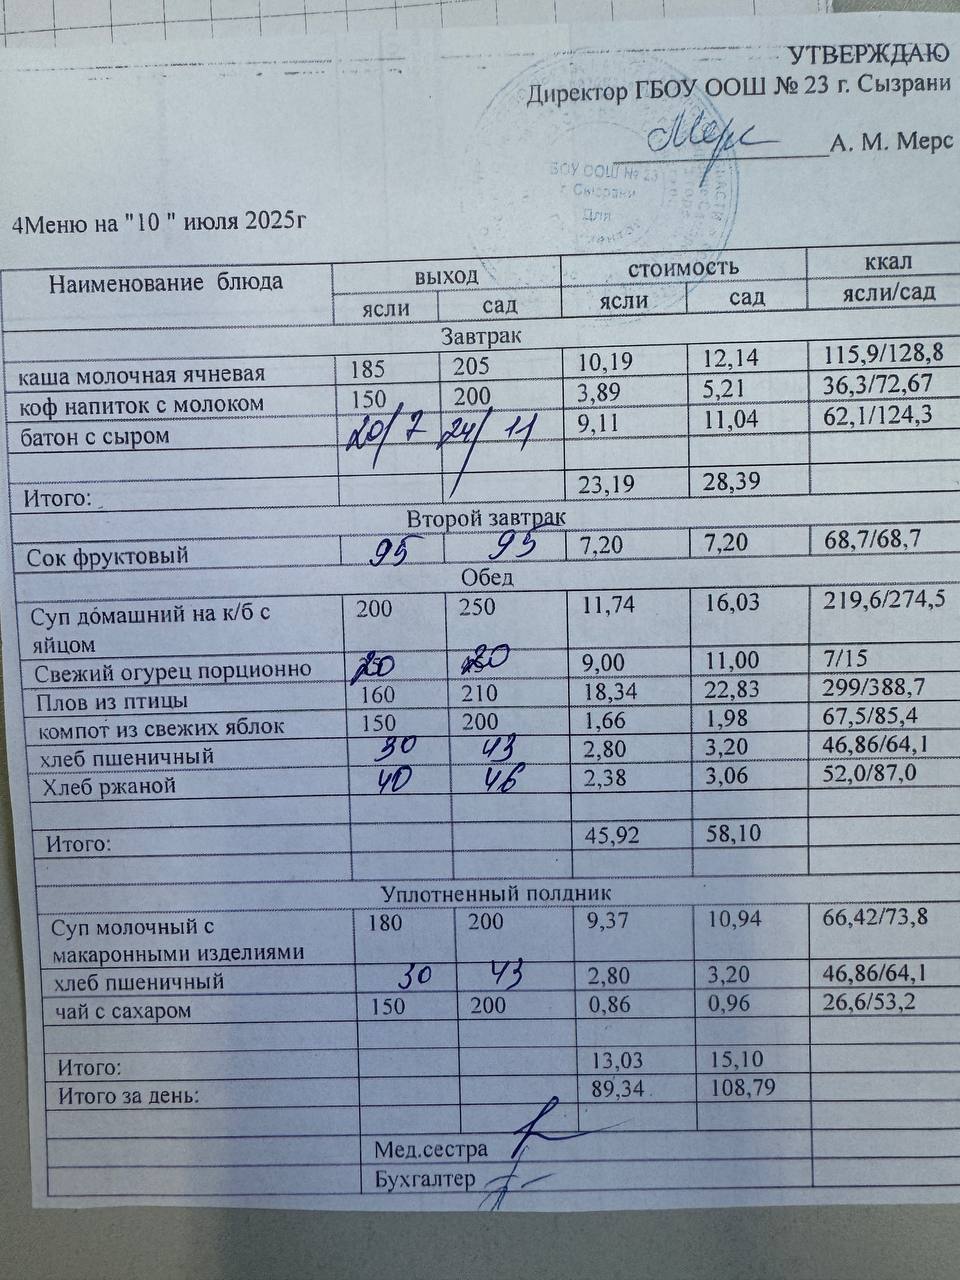 УТВЕРЖДАЮ
Директор ГБОУ ООШ № 23 г. Сызрани
Мерс А. М. Мерс
БОУ ООШ № 23
г. Сызрани
Для
4Меню на "10 " июля 2025г
Наименование блюда выход стоимость ккал
ясли сад ясли сад ясли/сад
Завтрак
каша молочная ячневая 185 205 10,19 12,14 115,9/128,8
коф напиток с молоком 150 200 3,89 5,21 36,3/72,67
батон с сыром 20/7 24/11 9,11 11,04 62,1/124,3
Итого: 23,19 28,39
Второй завтрак
Сок фруктовый 95 95 7,20 7,20 68,7/68,7
Обед
Суп домашний на к/б с 200 250 11,74 16,03 219,6/274,5
яйцом
Свежий огурец порционно 9,00 11,00 7/15
Плов из птицы 160 210 18,34 22,83 299/388,7
компот из свежих яблок 150 200 1,66 1,98 67,5/85,4
хлеб пшеничный 30 43 2,80 3,20 46,86/64,1
Хлеб ржаной 40 46 2,38 3,06 52,0/87,0
Итого: 45,92 58,10
Уплотненный полдник
Суп молочный с 180 200 9,37 10,94 66,42/73,8
макаронными изделиями
хлеб пшеничный 30 43 2,80 3,20 46,86/64,1
чай с сахаром 150 200 0,86 0,96 26,6/53,2
Итого: 13,03 15,10
Итого за день: 89,34 108,79
Мед.сестра
Бухгалтер